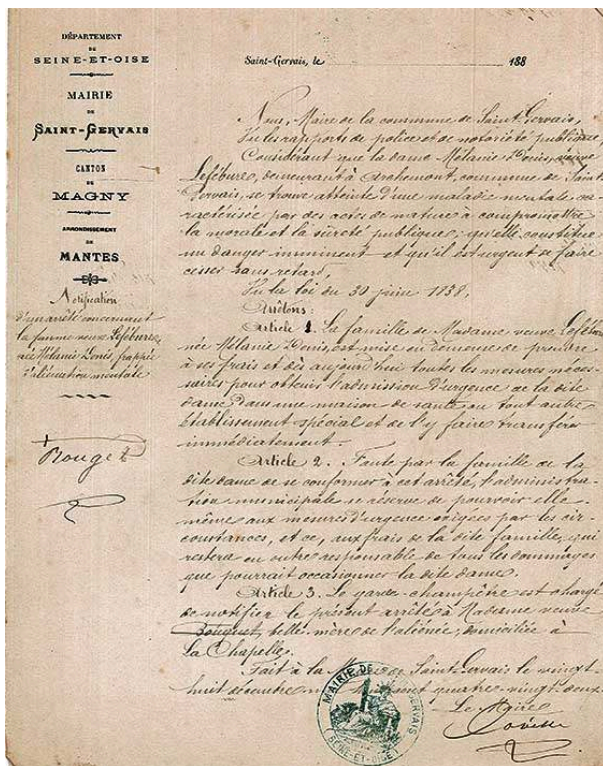 DÉPARTEMENT
DE
SEINE-ET-OISE
MAIRIE
DE
SAINT-GERVAIS
CANTON
DE
MAGNY
ARRONDISSEMENT
DE
MANTES
Notification
d'un arrêté concernant
la femme veuve Lefébure,
née Mélanie Denis, frappée
d'aliénation mentale
Rouget
Saint-Gervais, le 188
Nous, Maire de la commune de Saint Gervais,
Vu les rapports de police et de notoriété publique,
Considérant que la dame Mélanie Denis, veuve
Lefébure, demeurant à Archemont, commune de Saint
Gervais, se trouve atteinte d'une maladie mentale ca-
ractérisée par des actes de nature à compromettre
la morale et la sûreté publique, qu'elle constitue
un danger imminent et qu'il est urgent de faire
cesser sans retard,
Vu la loi du 30 juin 1838,
Arrêtons:
Article 1. La famille de Madame veuve Lefébure
née Mélanie Denis, est mise en demeure de prendre
à ses frais et dès aujourd'hui toutes les mesures néces-
saires pour obtenir l'admission d'urgence de la dite
dame dans une maison de santé ou tout autre
établissement spécial et de l'y faire transférer
immédiatement.
Article 2. Faute par la famille de la
dite dame de se conformer à cet arrêté, l'administra-
tion municipale se réserve de pourvoir elle-
même aux mesures d'urgence exigées par les cir-
constances, et ce, aux frais de la dite famille, qui
restera en outre responsable de tous les dommages
que pourrait occasionner la dite dame.
Article 3. Le garde-champêtre est chargé
de notifier le présent arrêté à Madame veuve
belle-mère de l'aliénée, domiciliée à
La Chapelle.
Fait à la Mairie de Saint-Gervais le vingt-
huit décembre mil huit cent quatre-vingt-deux
Le Maire
MAIRIE DE ST GERVAIS
(SEINE-ET-OISE)